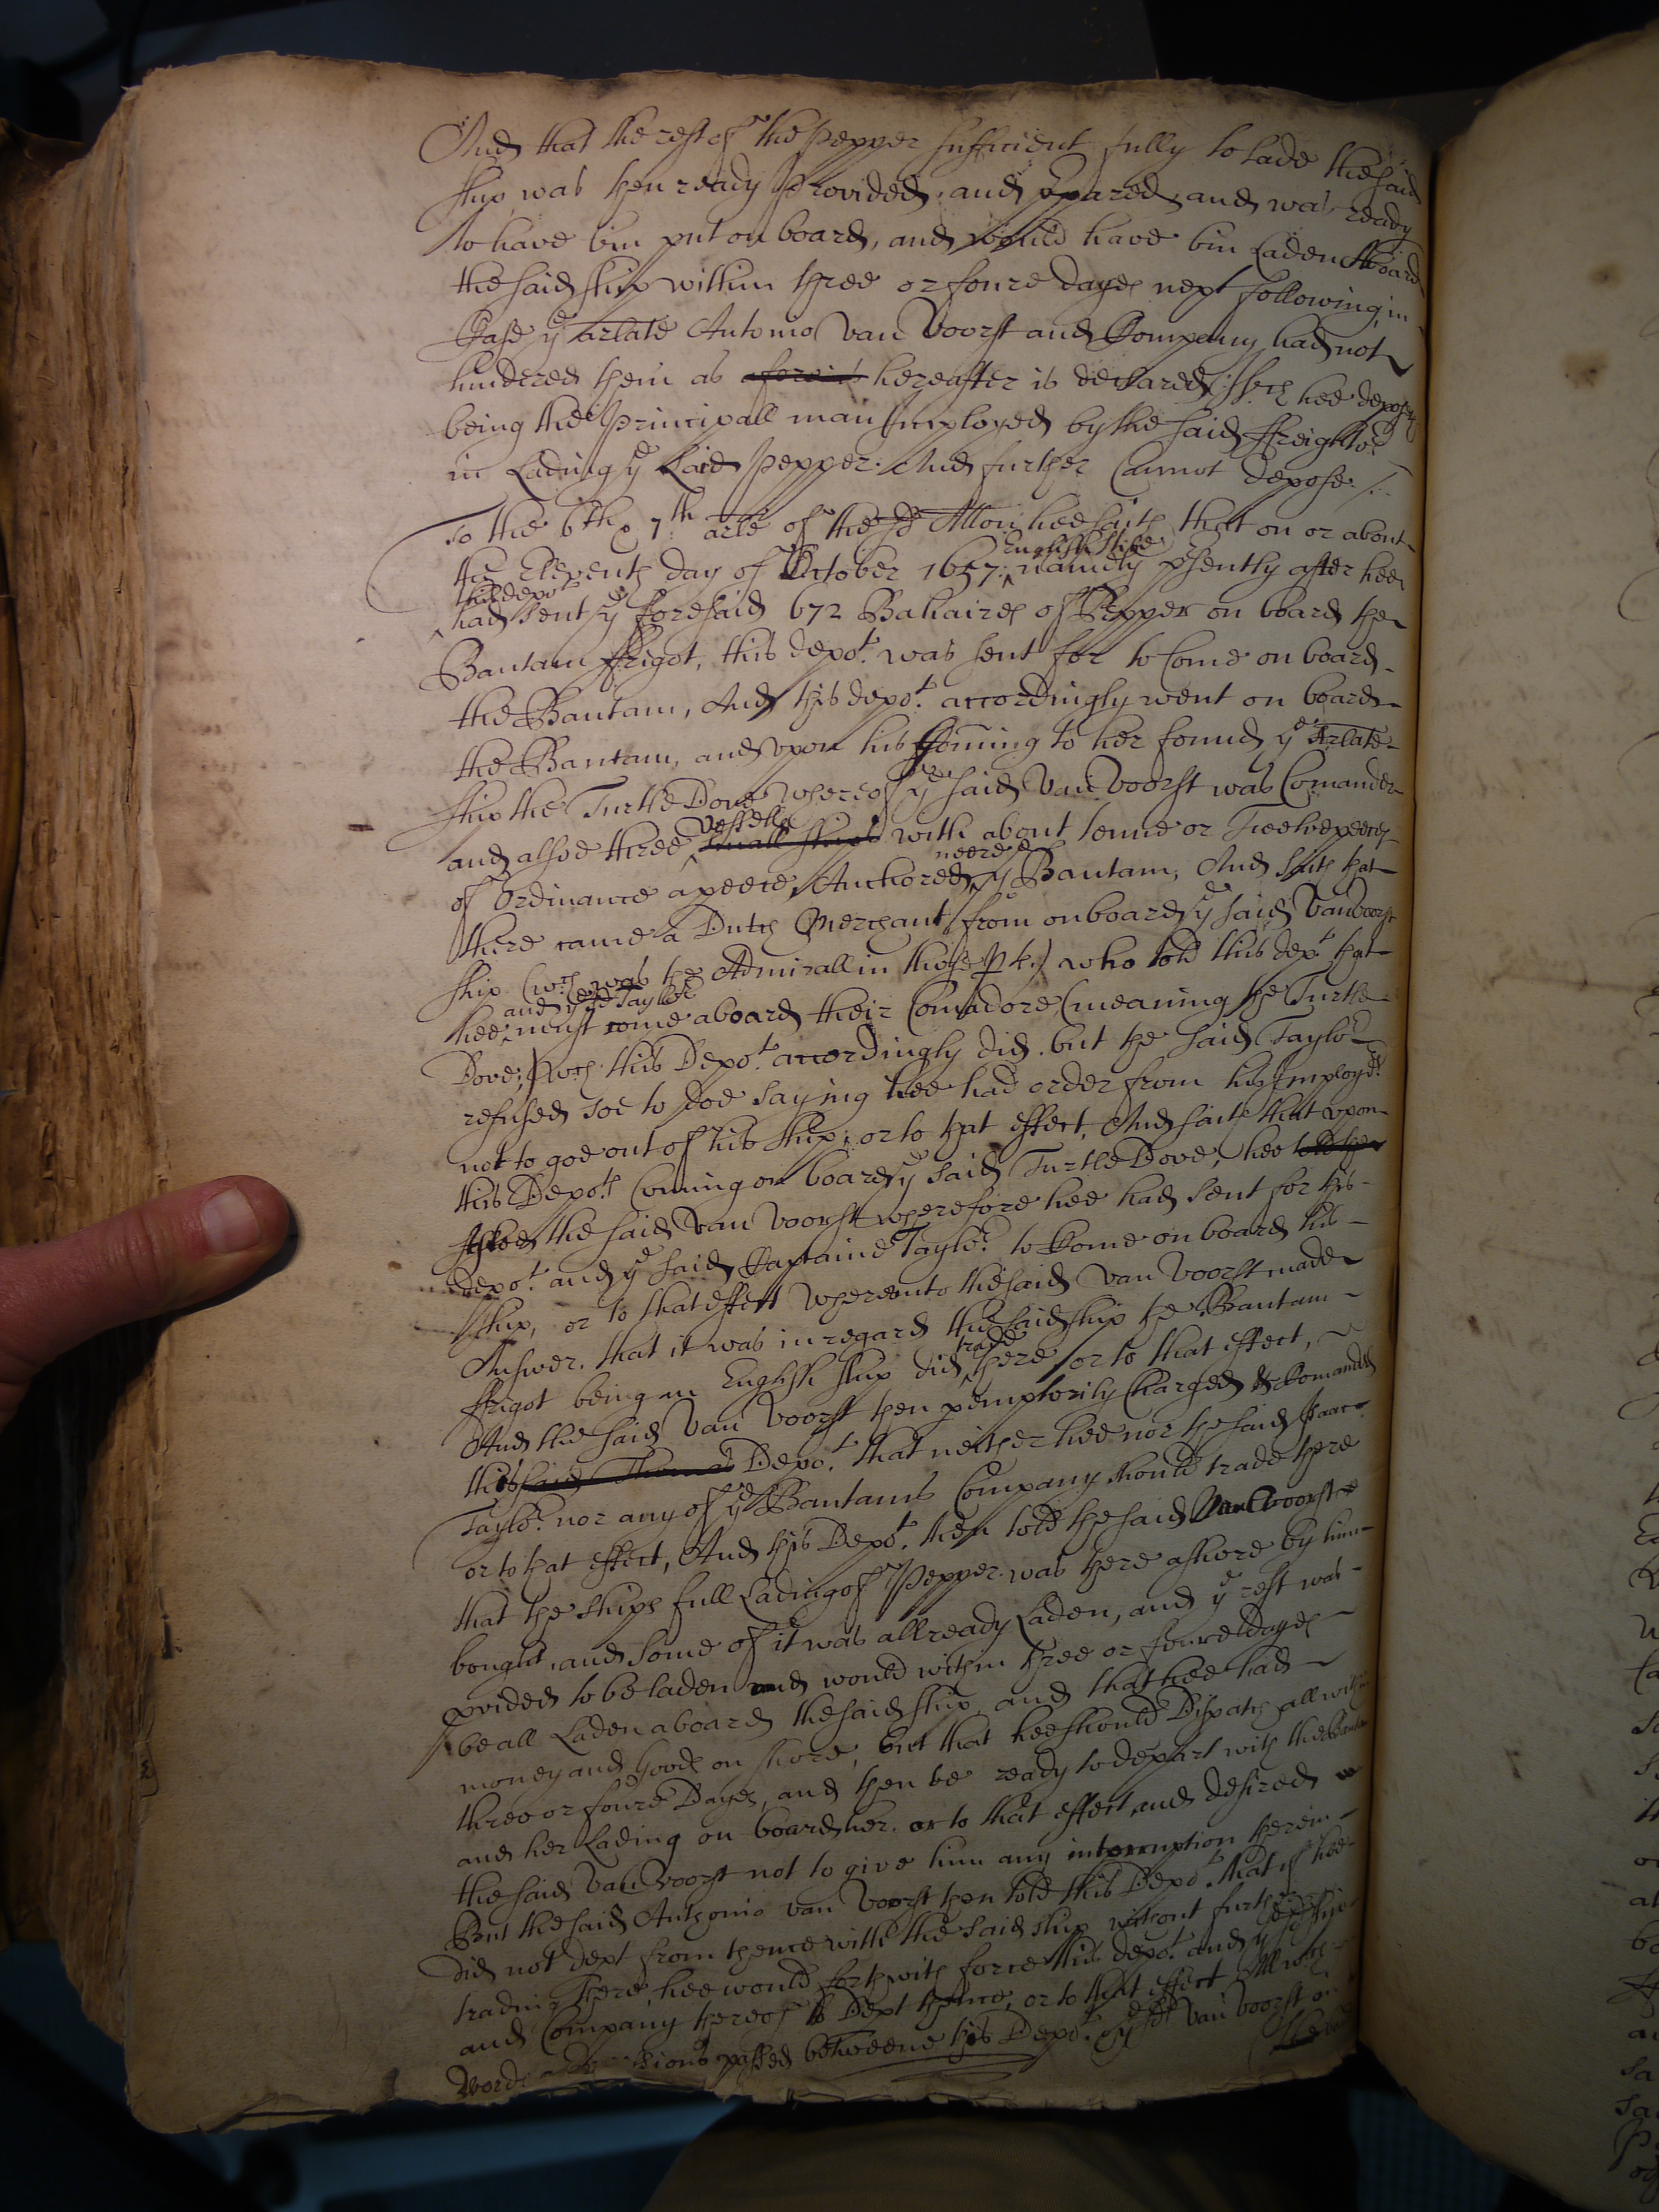 And that the rest of the Pepper sufficient fully to lade the said
ship was then ready Provided, and prpared, and was ready
to have bin put on board, and would have bin Laden Aboard
the said ship within three or foure dayes next following, in
Case ye arlate Antonio Van Voorst and Company had not
hindered them as aforeis hereafter is declared, wch hee deposeth
being the Principall man Imployed by the said ffreighters
in Lading ye said Pepper. And further Cannot depose /.
To the 6th & 7th arle of the sd Allon hee saith that on or about
English Stile
the Eleventh day of October 1657: namely psently after hee
this depot
had sent ye foresaid 672 Bahaires of Pepper on board the
Bantam ffrigot, this depot. was sent for to Come on board
the Bantam, And this depot. accordingly went on board
the Bantam, and upon his Coming to her found ye Arlate
ship the Turtle Dove whereof ye said Van Voorst was Comander
vessells
and alsoe three small ships with about tenne or Twelve peeces
neere
of Ordinance a peece, Anchored ye Bantam, And saith that
there came a Dutch Merchant from on board ye said Van Voorst
ship (wch was the Admirall in those pts) who told this dept that
and ye sd Taylor
hee must come aboard their Comadore, (meaning the Turtle
Dove;) wch this Depot. accordingly did. but the said Taylor
refused soe to doe saying hee had order from his Imployrs
not to goe out of his ship; or to that effect, And saith that upon
this Depots Coming on board ye said Turtle Dove, hee told the
Asked the said Van Voorst wherefore hee had sent for this
depot. and ye said Captaine Taylor. to Come on board his
ship, or to that effect whereunto the said Van Voorst made
Answer. that it was in regard the said ship the Bantam
trade
ffrigot being an English ship did there or to that effect,
And the said Van Voorst then pemptorily Charged & Comanded
this said Thomas Depot. that neither hee nor the said Isaac
Taylor. nor any of ye Bantams Company should trade there
or to that effect, And this Depot. then told the said Van Voorst
that the ships full Lading of Pepper was there ashore by him
bought, and some of it was allready Laden, and ye rest was
provided to be laden and would within three or foure dayes
be all Laden aboard the said ship, and that hee had
money and goods on shore, but that hee should Dispatch all within
three or foure Dayes, and then be ready to depart with the Bantam
and her Lading on board her. or to that effect, and desired
the said Van Voorst not to give him any interruption therein
But the said Anthonio van Voorst then told this Depot. that if hee
did not dept from thence with the said ship without further
trading there, hee would forthwith force this depot. and ye sd ship
and Company thereof to Dept thence, or to that effect All wch
words passed betweene this Depot. & ye sd Van Voorst